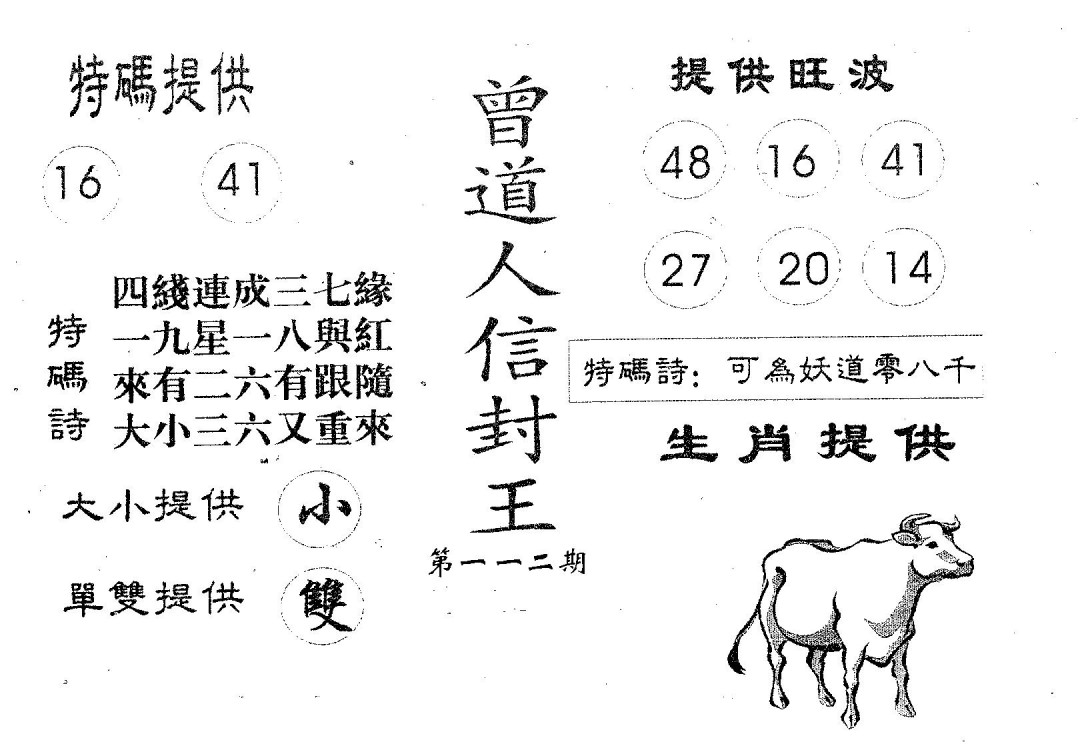 特碼提供
16 41
特碼詩
四綫連成三七緣
一九星一八與紅
來有二六有跟隨
大小三六又重來
大小提供 小
單雙提供 雙
曾道人信封王
第一一二期
提供旺波
48 16 41
27 20 14
特碼詩：可為妖道零八千
生肖提供